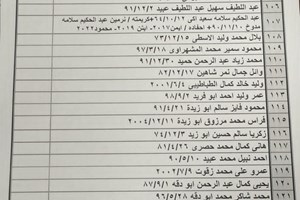 ١٠٦ عبد اللطيف سهيل عبد اللطيف عبيد ٩١/١٢/٢
١٠٧ عبد الحكيم سلامه سعيد ٦٤/١٠/١٢ +كريمته / نرمين عبد الحكيم سلامه
مدوخ ٩٠/١١/١٠ + احفاده / ايمن ٢٠١٧، ايتن ٢٠١٩، محمود ٢٠٢٢
١٠٨ بلال محمد وليد الاسطي ٧٣/١٢/١٥
١٠٩ محمود سمير محمد المشهراوي ٩٧/٣/١٨
١١٠ محمد زياد عبد الرحمن حميد ٩١/١٢/١٠
١١١ وائل جمال نمر شاهين ٨٢/١٢/١٧
١١٢ وليد خالد كمال الطباطيبي ٢٠٠١/٦/٤
١١٣ عمر وليد احمد ابو فريد ٩٨/٩/٢
١١٤ محمود فايز سالم ابو زيدة ٩١/٤/٢١
١١٥ فراس محمد مرزوق ابو زيدة ٢٠٠٤/١٢/١١
١١٦ زكريا سالم حسين ابو زيد ٧٤/١٢/٣
١١٧ هاني كمال محمد حمصي ٨١/٤/٢٦
١١٨ احمد نبيل محمد عبيد ٩٠/٥/١٠
١١٩ عمرو علي محمد زقوت ٢٠٠٢/٧/٩
١٢٠ يحيى كمال عبد الرحمن ابو دقه ٨٧/٩/١
١٢١ محمد شاكر محمد ابو دقه ٩٦/٥/٢٨